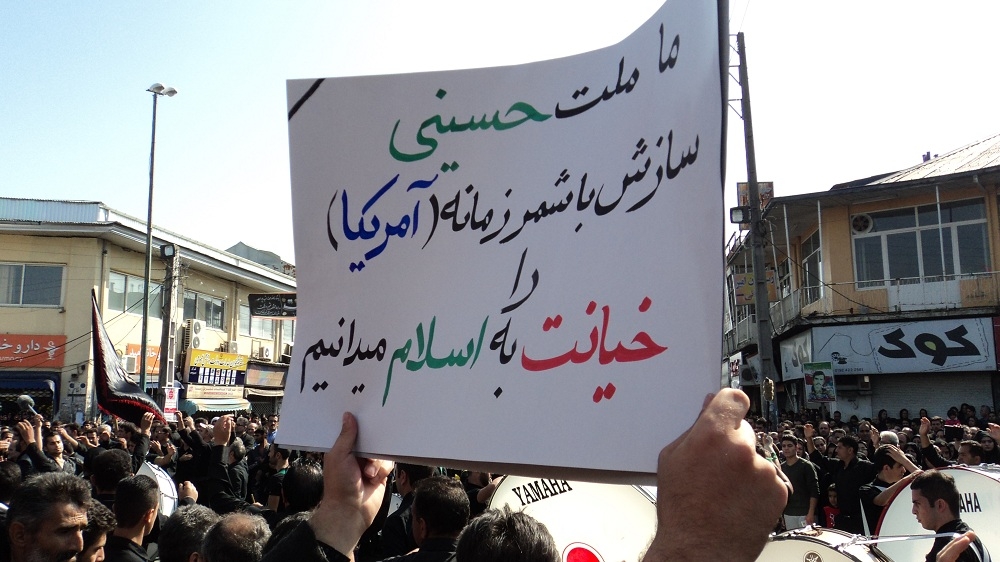 ما ملت حسینی
سازش با شمر زمانه (آمریکا)
را
خیانت به اسلام میدانیم
کوک
داروخ
YAMAHA
AHA